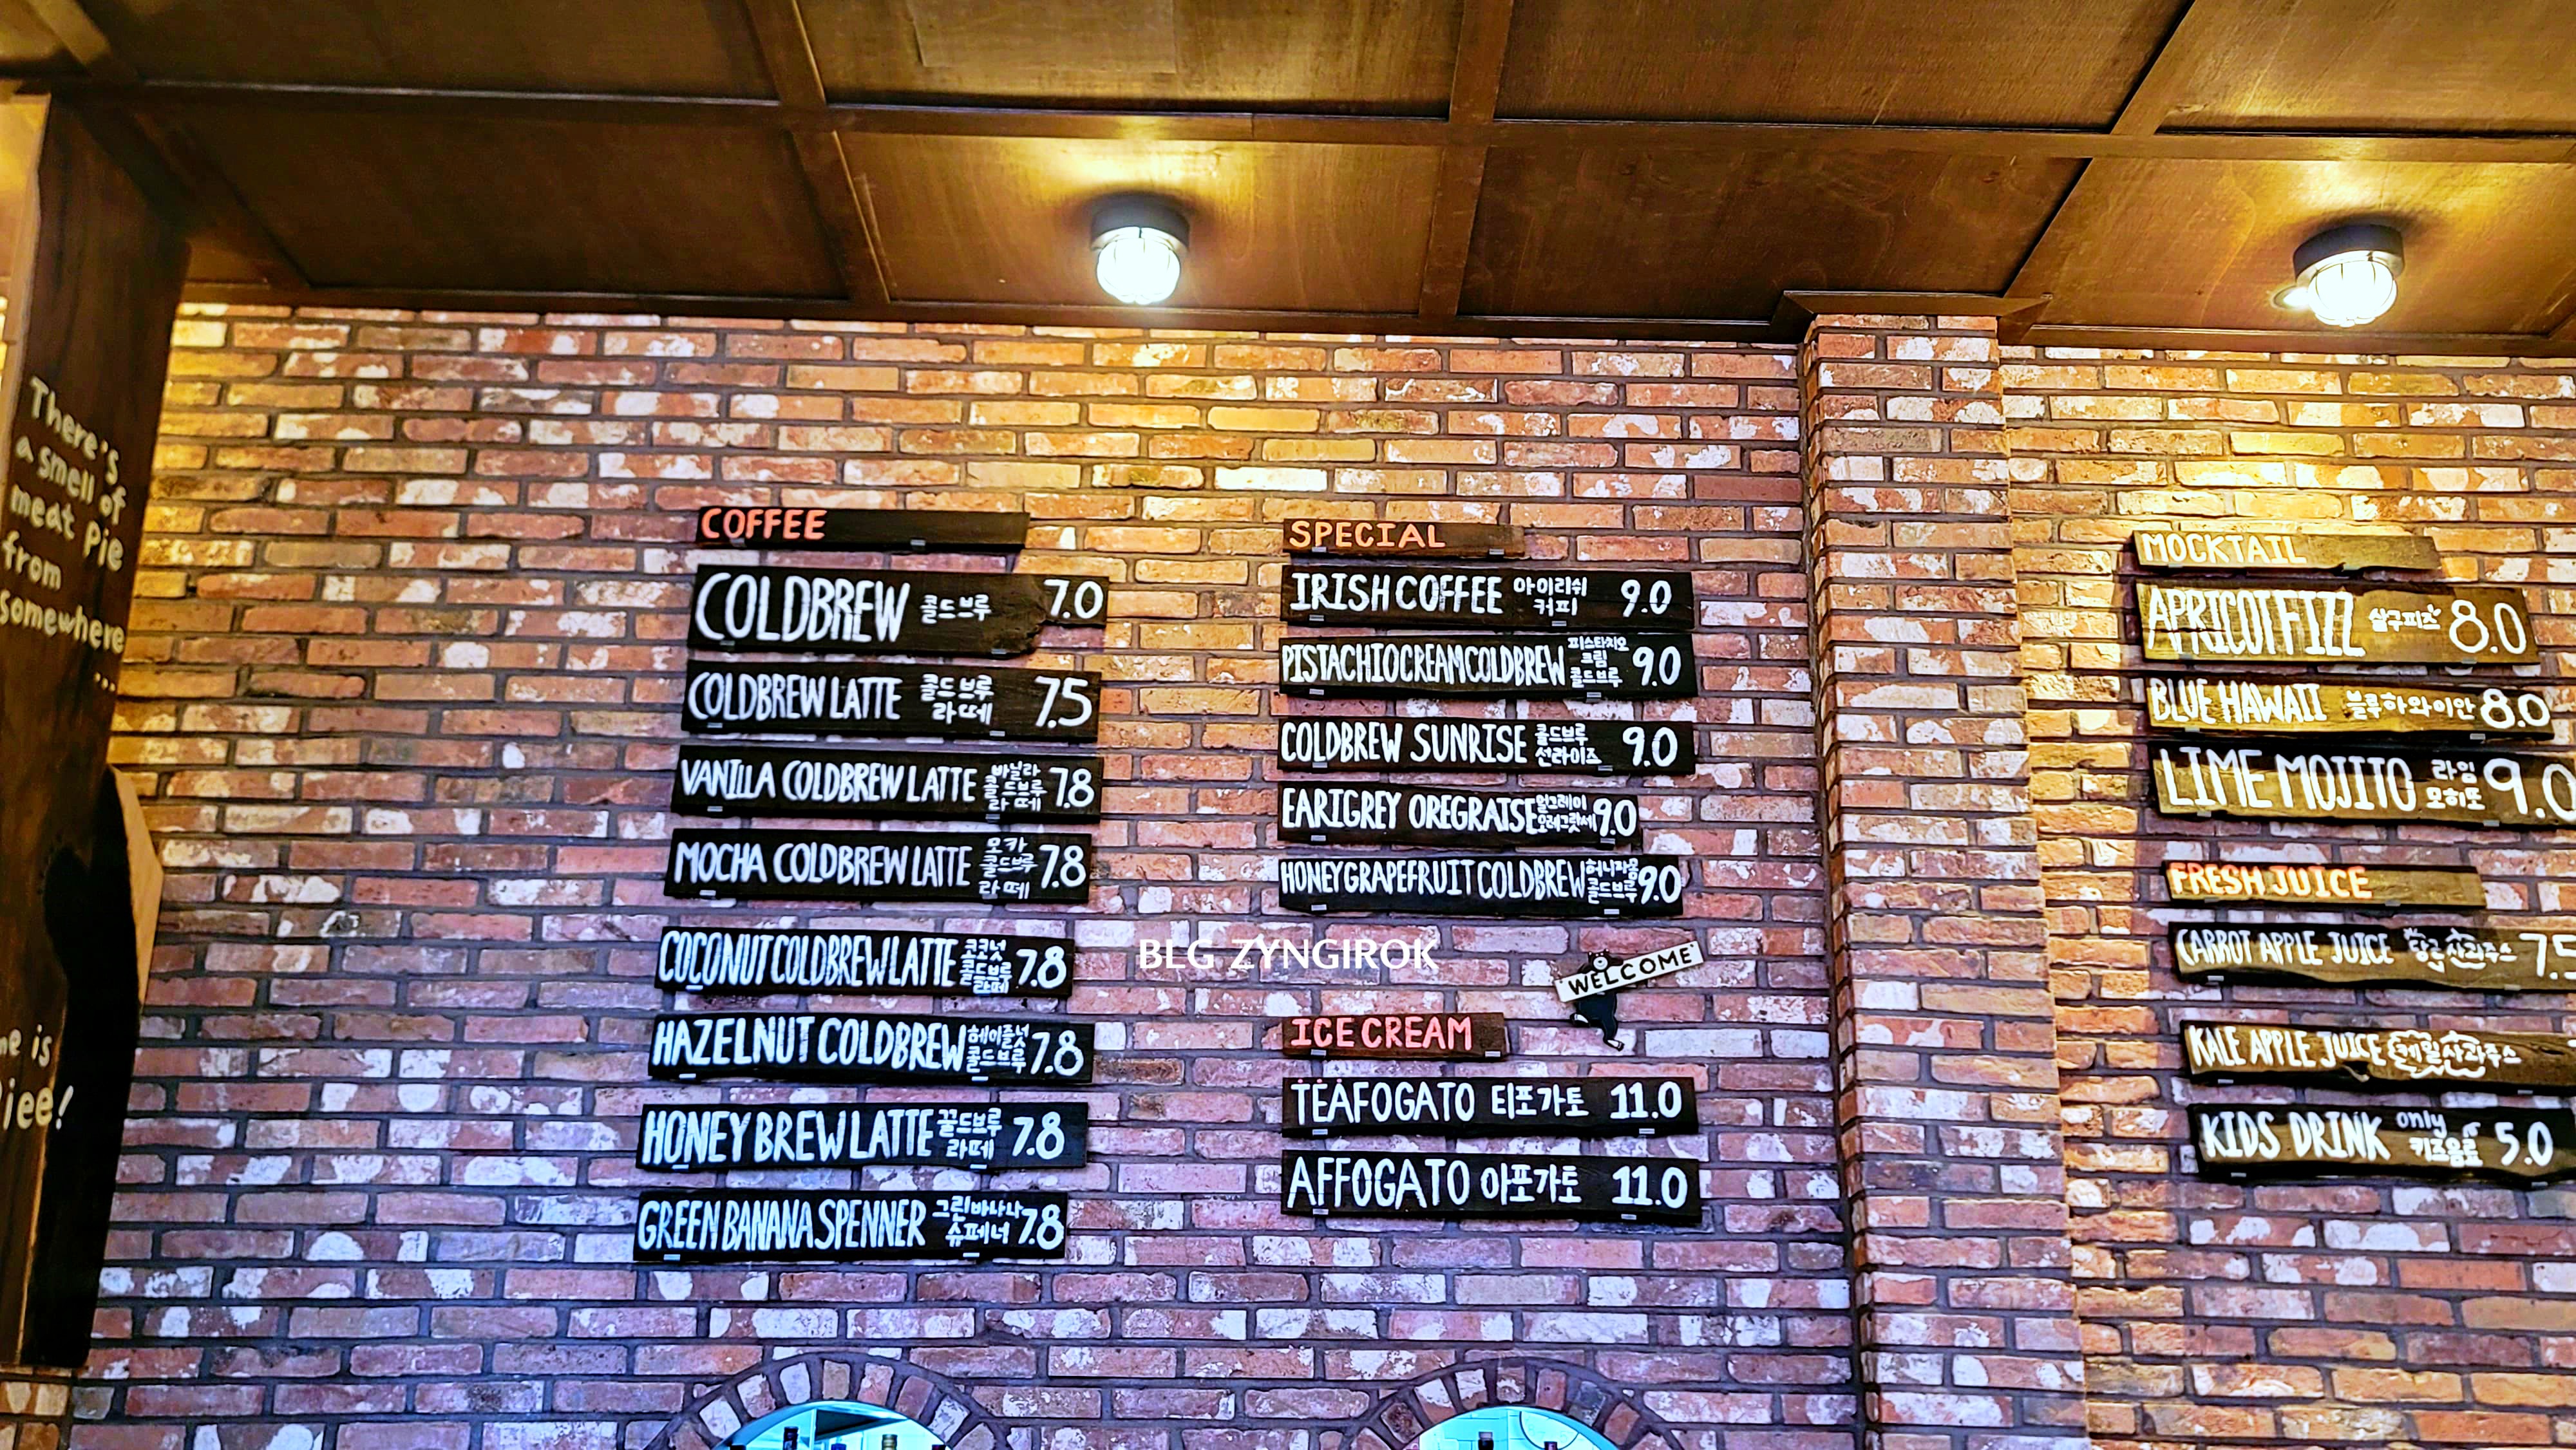 There's
a smell of
meat Pie
from
somewhere
...
me is
COFFEE
COLDBREW 콜드브루 7.0
COLDBREW LATTE 콜드브루 라떼 7.5
VANILLA COLDBREW LATTE 바닐라 콜드브루 라떼 7.8
MOCHA COLDBREW LATTE 모카 콜드브루 라떼 7.8
COCONUT COLDBREW LATTE 코코넛 콜드브루 라떼 7.8
HAZELNUT COLDBREW 헤이즐넛 콜드브루 7.8
HONEY BREW LATTE 꿀드브루 라떼 7.8
GREEN BANANA SPENNER 그린바나나 슈페너 7.8
SPECIAL
IRISH COFFEE 아이리쉬 커피 9.0
PISTACHIO CREAM COLDBREW 피스타치오 크림 콜드브루 9.0
COLDBREW SUNRISE 콜드브루 선라이즈 9.0
EARlGREY OREGRATSE 얼그레이 오레그랏세 9.0
HONEY GRAPEFRUIT COLDBREW 허니자몽 콜드브루 9.0
BLG ZYNGIROK
WELCOME
ICE CREAM
TEAFOGATO 티포가토 11.0
AFFOGATO 아포가토 11.0
MOCKTAIL
APRICOT FIZZ 살구피즈 8.0
BLUE HAWAII 블루하와이안 8.0
LIME MOJITO 라임 모히또 9.0
FRESH JUICE
CARROT APPLE JUICE 당근사과주스 7.5
KALE APPLE JUICE 케일사과주스
KIDS DRINK only 키즈음료 5.0